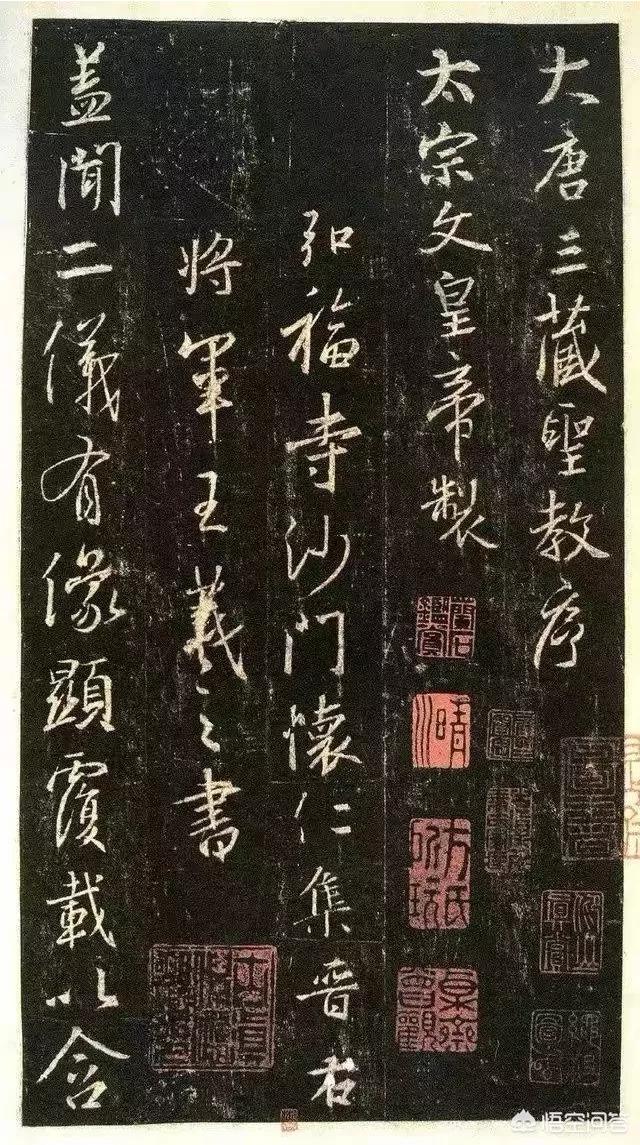 大唐三藏聖教序
太宗文皇帝製
弘福寺沙門懷仁集晉右
將軍王羲之書
蓋聞二儀有像顯覆載以含
蘭石鑑賞
晴川
悟空问答